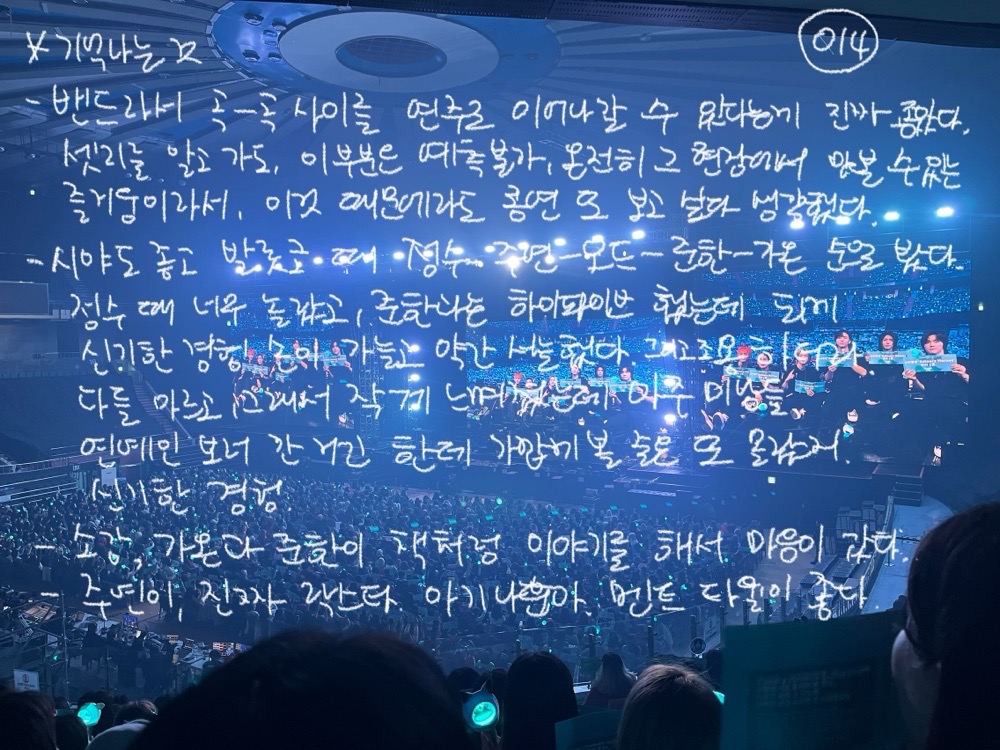 * 기억나는 것
014
- 밴드라서 곡-곡 사이를 연주로 이어나갈 수 있다는게 진짜 좋았다.
셋리를 알고 가도, 이부분은 예측불가, 온전히 그 현장에서 맛볼 수 있는
즐거움이라서, 이것 때문에라도 공연 또 보고 싶다 생각했다.
- 시야도 좋고 때 정수-주연-오드-준한-가온 순으로 봤다.
정수 때 너무 놀랐고, 준한나는 하이파이브 했는데 되게
신기한 경험 손이 가늘고 약간 서늘했다. 그리고 조용히
다들 마르고, 그래서 작게 느껴졌는데 아주 미남들
연예인 보러 간 거긴 한데 가깝게 볼 줄은 또 몰랐어.
신기한 경험.
- 소감, 가온과 준한이 책처럼 이야기를 해서 마음이 갔다.
- 주연이, 진짜 락스타. 멘트 다 좋다.